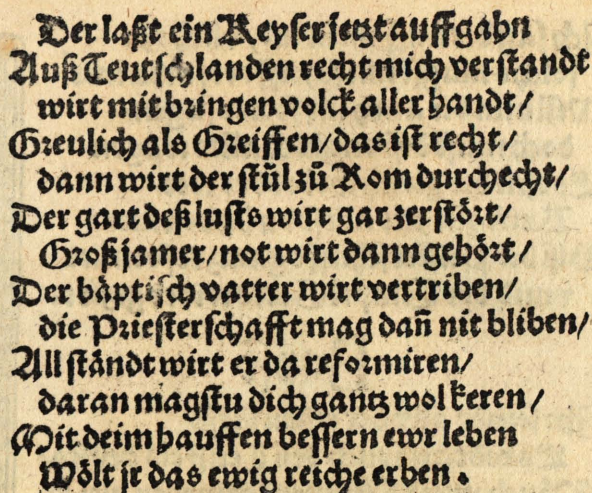 Der laßt ein Keyser jetzt auffgahn
Auß Teutschlanden recht mich verstandt
wirt mit bringen volck aller handt/
Greulich als Greiffen/das ist recht/
dann wirt der stůl zů Rom durchecht/
Der gart deß lusts wirt gar zerstört/
Groß jamer/not wirt dann gehört/
Der båptisch vatter wirt vertriben/
die Priesterschafft mag dañ nit bliben/
All ståndt wirt er da reformiren/
daran magstu dich gantz wol keren/
Mit deim hauffen bessern ewr leben
Wölt jr das ewig reiche erben.